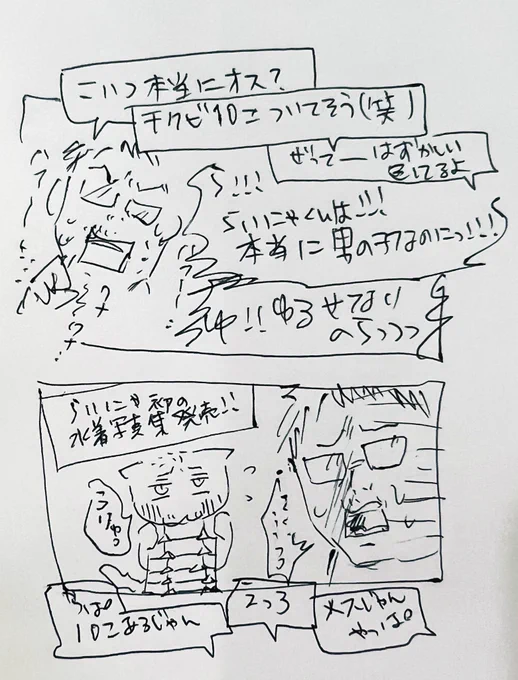 こいつ本当にオス?
チクビ10こついてそう(笑)
ぜってーはずかしい
色してるよ
ら!!!
らいにゃくんは!!!
本当に男の子なのにっ!!!
ゆ!!ゆるせない
のらっっっ
らいにゃ初の
水着写真集発売!!
うりゅ?
えっろ
メスじゃん
やっぱ。
10こあるじゃん